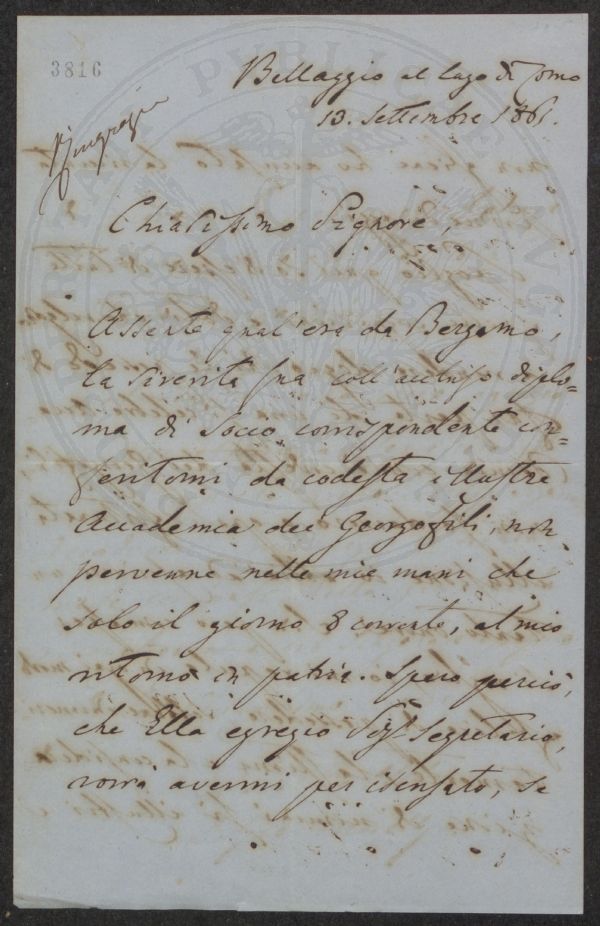 3816
Ringrazia
Bellaggio al lago di Como
13. Settembre 1861.
Chiarissimo Signore,
Assente qual'era da Bergamo,
la riverita sua coll'accluso diplo=
ma di Socio corrispondente con=
feritomi da codesta illustre
Accademia dei Georgofili, non
pervenne nelle mie mani che
solo il giorno 8 corrente, al mio
ritorno in patria. Spero perciò,
che Ella egregio Sigr. Segretario,
vorrà avermi per iscusato, se